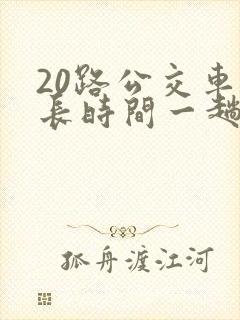 20路公交車
長時間一趟
孤舟渡江河